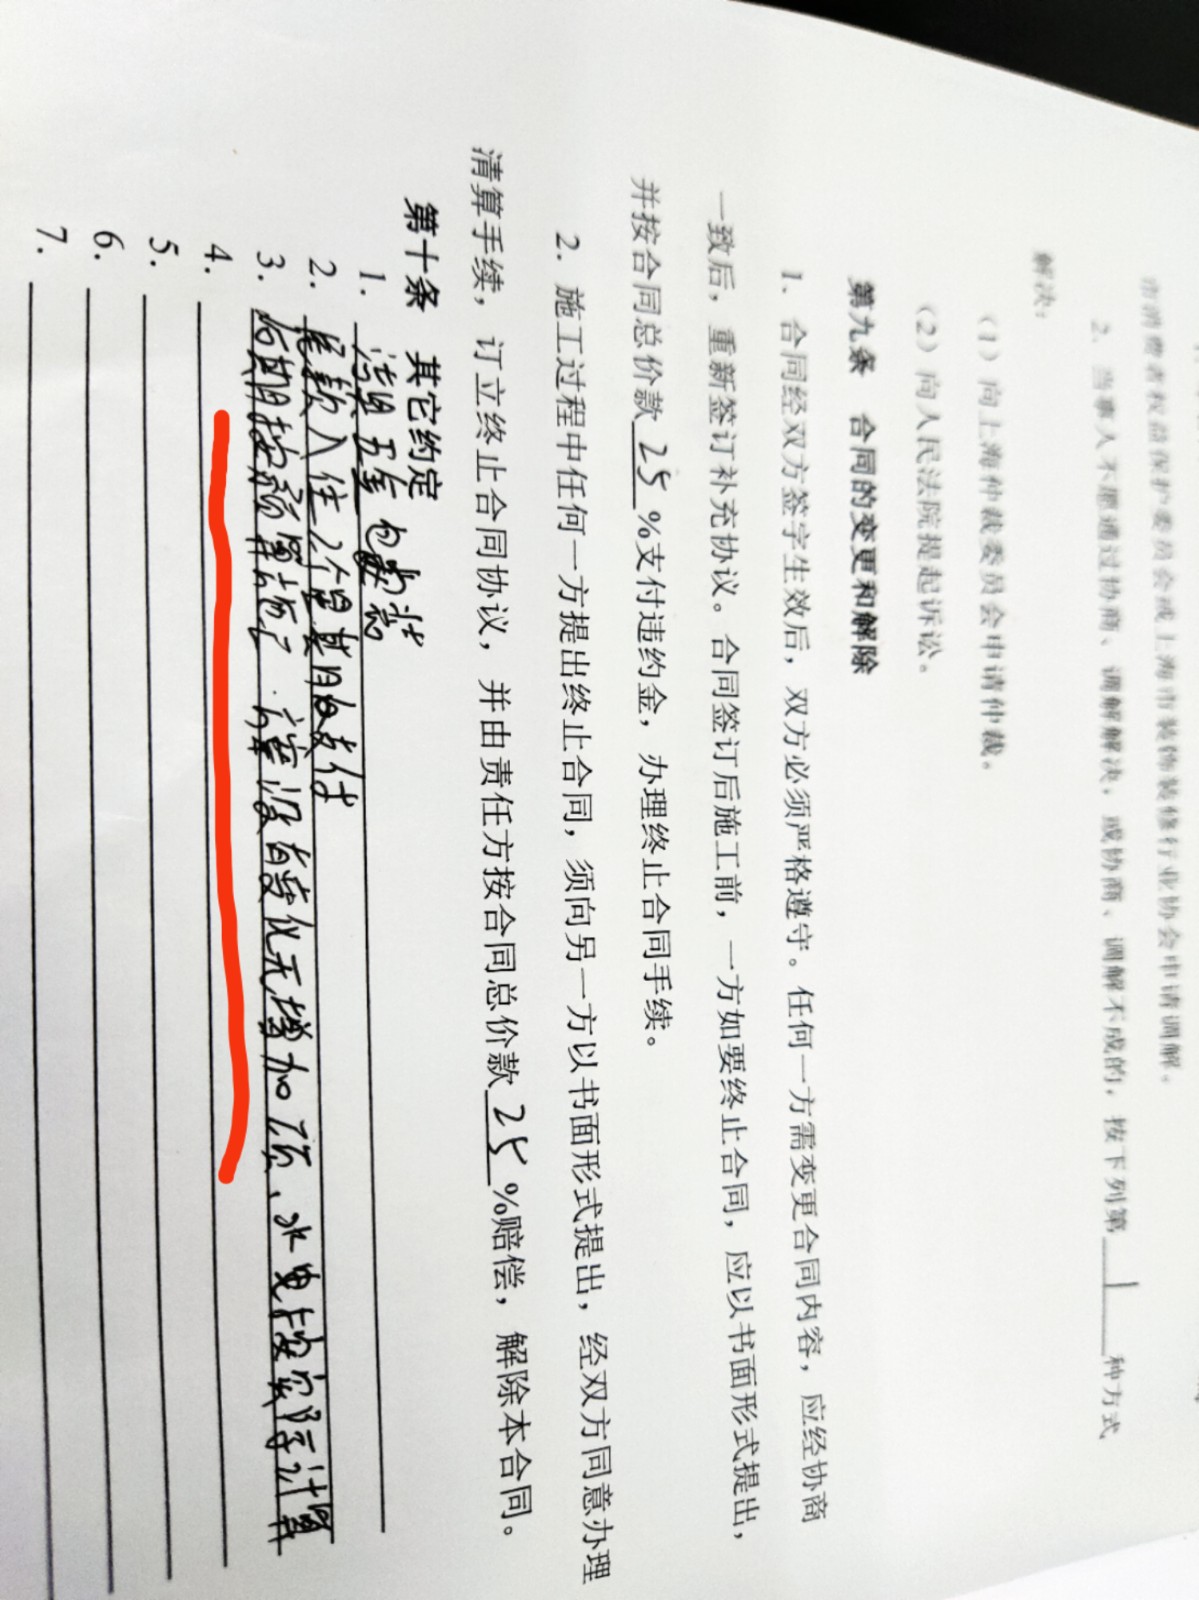 市消费者权益保护委员会或上海市装饰装修行业协会申请调解。
2、当事人不愿通过协商、调解解决，或协商、调解不成的，按下列第 1 种方式
解决：
（1）向上海仲裁委员会申请仲裁。
（2）向人民法院提起诉讼。
第九条 合同的变更和解除
1、合同经双方签字生效后，双方必须严格遵守。任何一方需变更合同内容，应经协商
一致后，重新签订补充协议。合同签订后施工前，一方如要终止合同，应以书面形式提出，
并按合同总价款 25 %支付违约金，办理终止合同手续。
2．施工过程中任何一方提出终止合同，须向另一方以书面形式提出，经双方同意办理
清算手续，订立终止合同协议，并由责任方按合同总价款 25 %赔偿，解除本合同。
第十条 其它约定
1. 洁具五金包安装
2. 尾款入住2个星期内支付
3. 后期按预算施工 方案没有变化无增加项、水电按实际计算
4.
5.
6.
7.